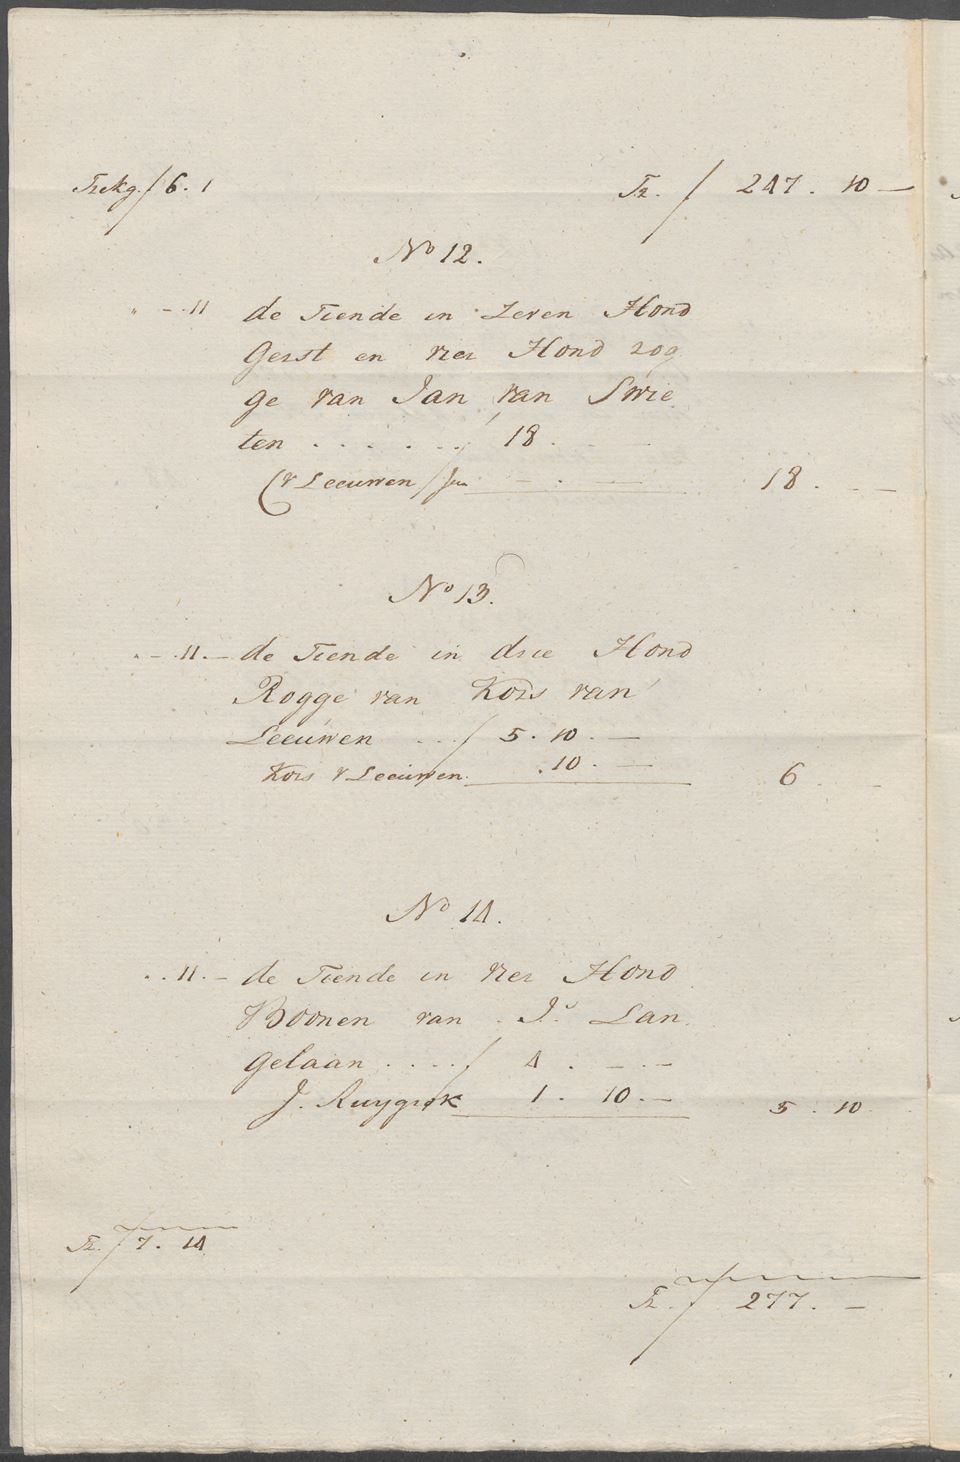 Trekg. f 6. 1
Tr. f 247. 10 —
No 12.
" - 11 de Tiende in Zeven Hond
Gerst en vier Hond rog
ge van Jan van Swie
ten . . . . . f 18. - —
C v Leeuwen f - . — 18. - —
No 13.
" - 11. — de Tiende in drie Hond
Rogge van Kors van
Leeuwen . . . f 5. 10. —
Kors v Leeuwen. . 10. — 6
No 14.
. . 11. — de Tiende in vier Hond
Boonen van Js Lan
gelaan . . . . f 4. — —
J. Ruygrok 1. 10. — 5. 10
Tr. f 7. 14
Tr. f 277. —